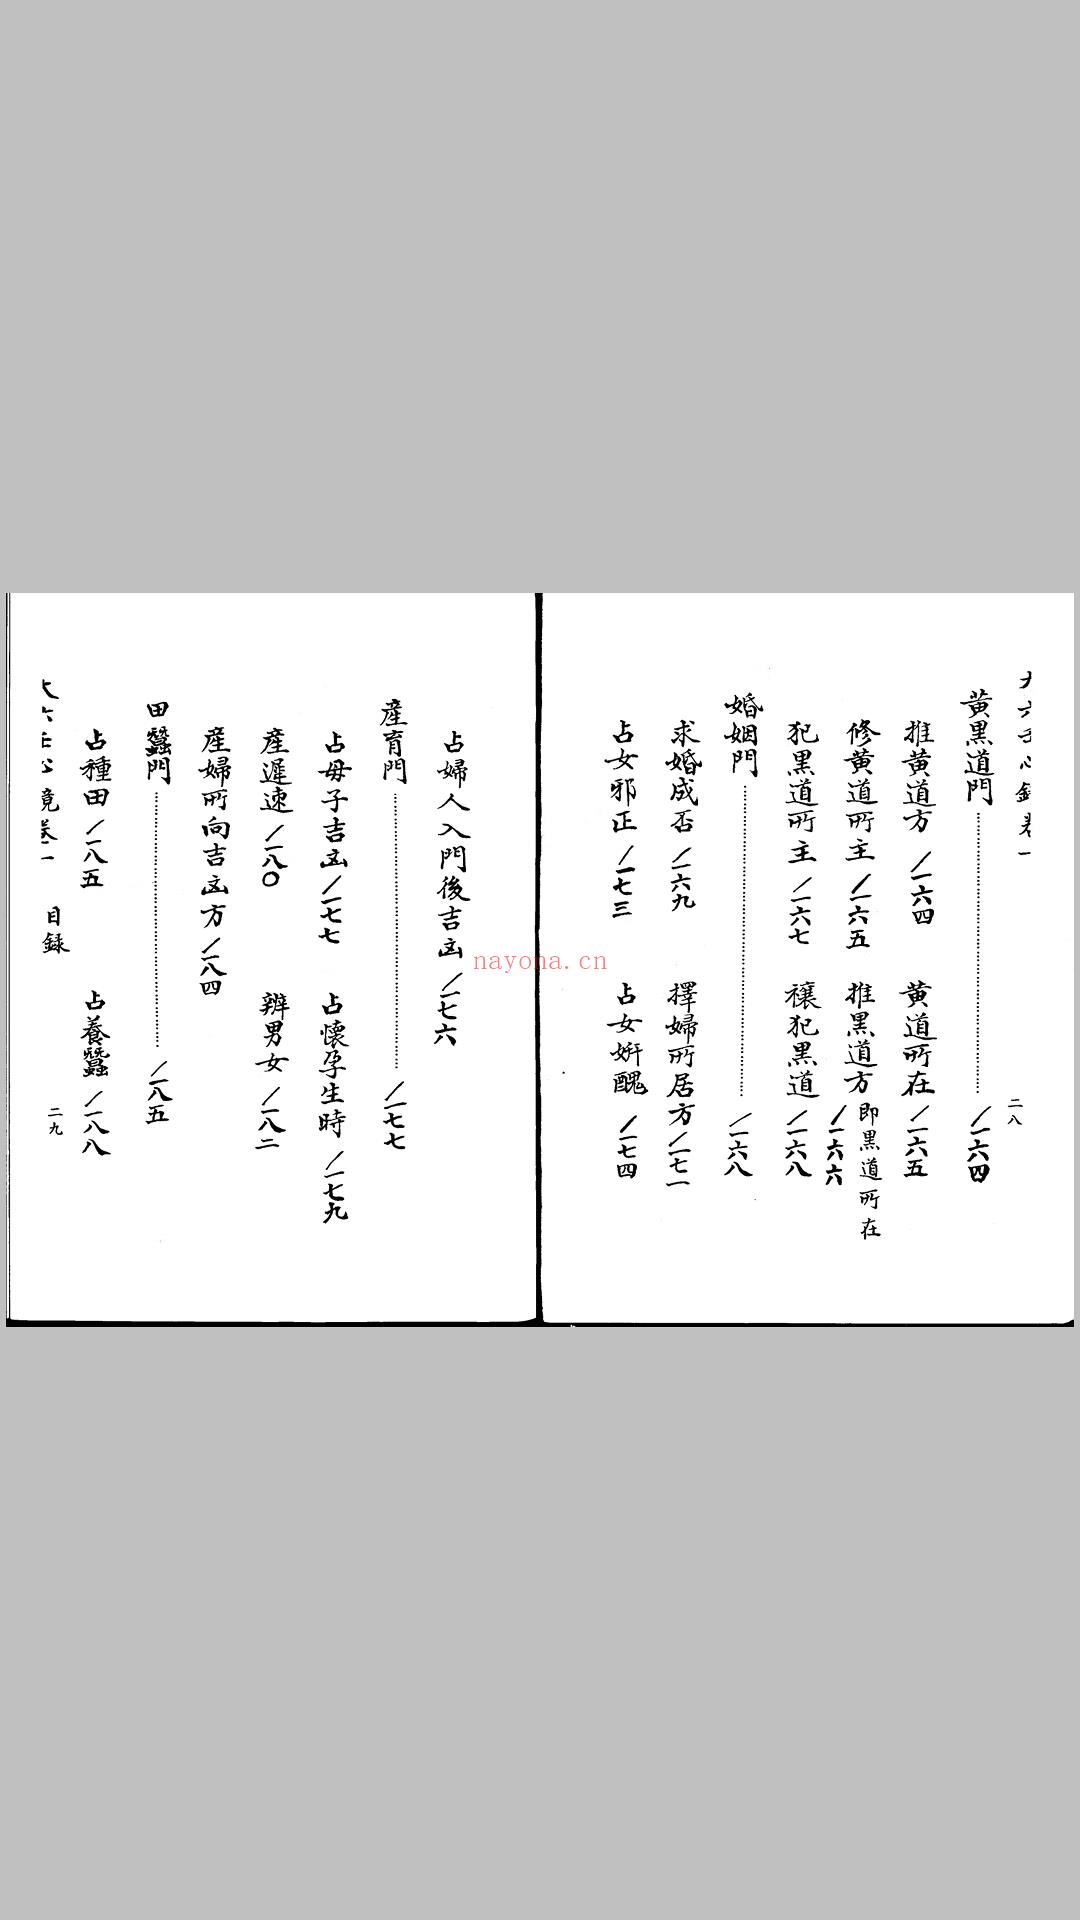 二八
黃黑道門/一六四
推黃道方/一六四
黃道所在/一六五
修黃道所主/一六五
推黑道方即黑道所在/一六六
犯黑道所主/一六七
禳犯黑道/一六八
婚姻門/一六八
求婚成否/一六九
擇婦所居方/一七一
占女邪正/一七三
占女妍醜/一七四
占婦人入門後吉凶/一七六
產育門/一七七
占母子吉凶/一七七
占懷孕生時/一七九
產遲速/一八〇
辨男女/一八二
產婦所向吉凶方/一八四
田蠶門/一八五
占種田/一八五
占養蠶/一八八
目錄
二九
nayona.cn